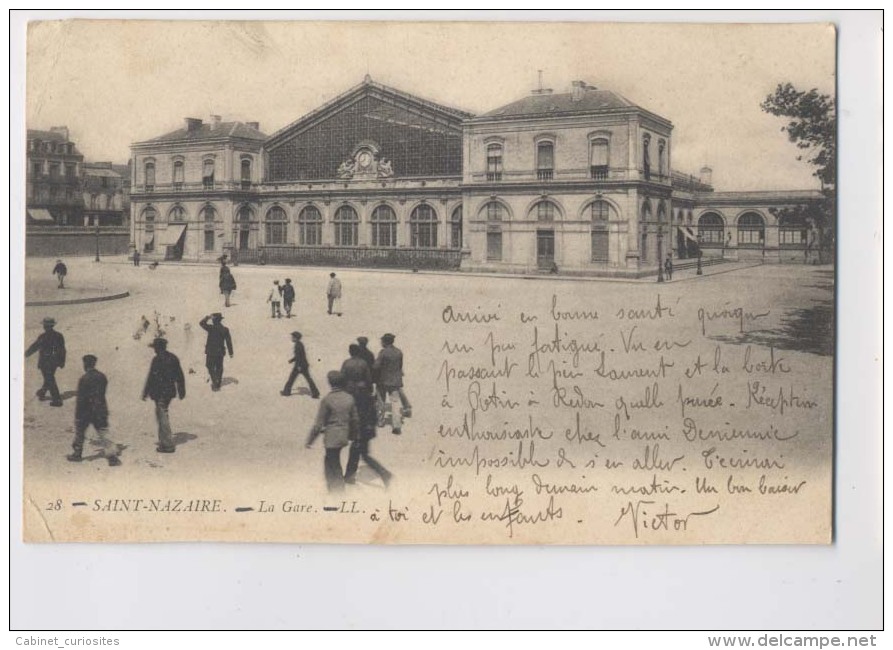 Arrivé en bonne santé quoique
un peu fatigué. Vu en
passant le père Laurent et la boîte
à Potin à Redon quelle purée - Réception
enthousiaste chez l'ami
impossible de s'en aller. T'écrirai
plus long demain matin. Un bon baiser
à toi et les enfants. Victor
28 - SAINT-NAZAIRE. - La Gare. - LL.
Cabinet_curiosites
www.delcampe.net